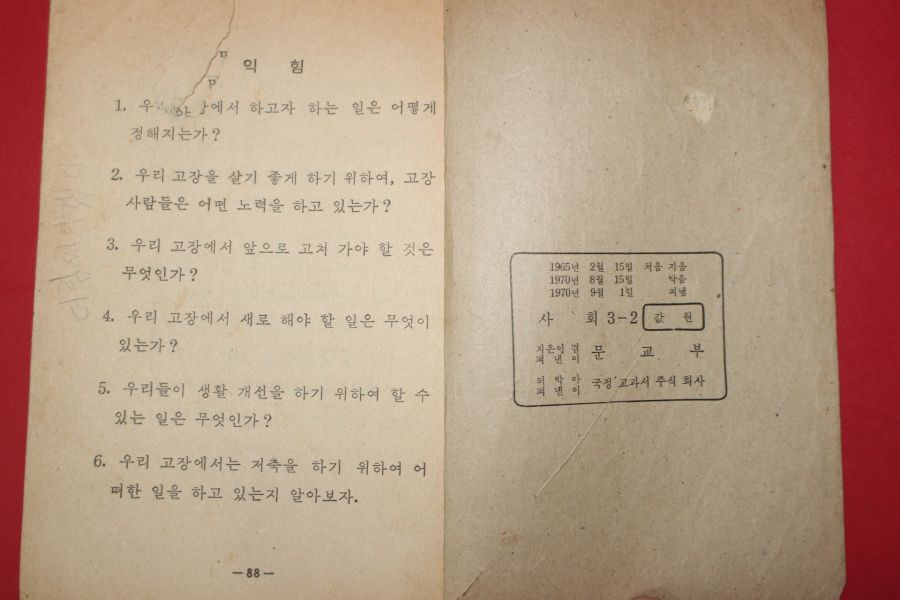 익 힘
1. 우리 고장에서 하고자 하는 일은 어떻게
정해지는가?
2. 우리 고장을 살기 좋게 하기 위하여, 고장
사람들은 어떤 노력을 하고 있는가?
3. 우리 고장에서 앞으로 고쳐 가야 할 것은
무엇인가?
4. 우리 고장에서 새로 해야 할 일은 무엇이
있는가?
5. 우리들이 생활 개선을 하기 위하여 할 수
있는 일은 무엇인가?
6. 우리 고장에서는 저축을 하기 위하여 어
떠한 일을 하고 있는지 알아보자.
—88—
1965년 2월 15일 처음 지음
1970년 8월 15일 박음
1970년 9월 1일 펴냄
사 회 3-2 값 원
지은이 겸
펴낸이 문 교 부
되박아
펴낸이 국정 교과서 주식 회사